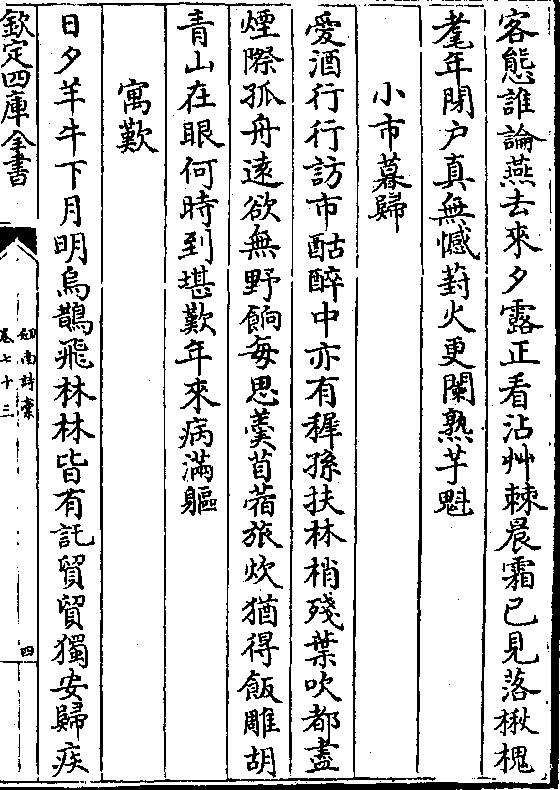 客態誰論燕去來夕露正看沾艸棘晨霜已見落楸槐
耄年閉户真無憾葑火更闌熟芋魁
小市暮歸
愛酒行行訪市酤醉中亦有稺孫扶林梢殘葉吹都盡
煙際孤舟遠欲無野餉每思羮苜蓿旅炊猶得飯雕胡
青山在眼何時到堪歎年來病滿軀
寓歎
日夕羊牛下月明烏鵲飛林林皆有託貿貿獨安歸疾
欽定四庫全書
劍南詩稾
卷七十三
四